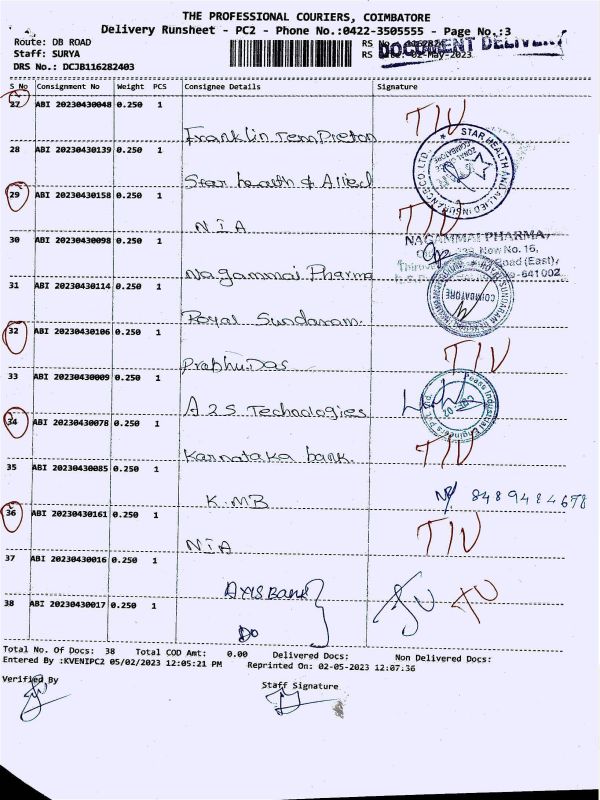 THE PROFESSIONAL COURIERS, COIMBATORE
Delivery Runsheet - PC2 - Phone No.:0422-3505555 - Page No.:3
Route: DB ROAD
Staff: SURYA
DRS No.: DCJB116282403
DOCUMENT DELIVERY
02-May-2023
S No Consignment No Weight PCS Consignee Details Signature
27 ABI 20230430048 0.250 1 Franklin Tempreton TIV
28 ABI 20230430139 0.250 1 Star health & Allied
STAR HEALTH AND ALLIED INSURANCE CO. LTD.
COIMBATORE
29 ABI 20230430158 0.250 1 NIA TIV
30 ABI 20230430098 0.250 1 Nagammai Pharma
NAGAMMAI PHARMA,
New No. 16,
Road (East),
641002
31 ABI 20230430114 0.250 1 Royal Sundaram.
COIMBATORE
32 ABI 20230430106 0.250 1 Prabhu.Das TIV
33 ABI 20230430009 0.250 1 A2S Technologies
34 ABI 20230430078 0.250 1 Karnataka bank. TIV
35 ABI 20230430085 0.250 1 K.MB 8489484678
36 ABI 20230430161 0.250 1 NIA TIV
37 ABI 20230430016 0.250 1 AXIS Bank
38 ABI 20230430017 0.250 1 Do
Total No. Of Docs: 38 Total COD Amt: 0.00 Delivered Docs: Non Delivered Docs:
Entered By :KVENIPC2 05/02/2023 12:05:21 PM Reprinted On: 02-05-2023 12:07.36
Verified By Staff Signature